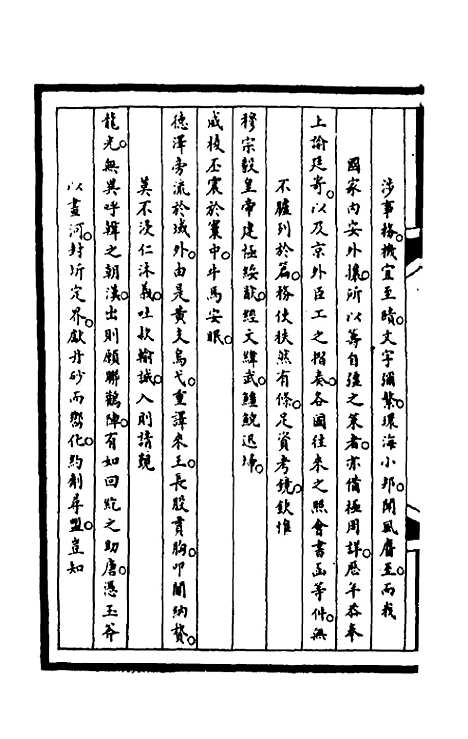 涉事務機宜至賾文字彌繁環海小邦聞風麕至而我
國家內安外攘所以籌自強之策者亦備極周詳歷年恭奉
上諭廷寄以及京外臣工之摺奏各國往來之照會書函等件無
不臚列於篇務使秩然有條足資考鏡欽惟
穆宗毅皇帝建極綏猷經文緯武鯨鯢迅埽
威稜丕震於寰中牛馬安眠
德澤旁流於域外由是黃支烏弋重譯來王長股貫胸叩關納贄
莫不浸仁沐義吐款輸誠入則請覲
龍光無異呼韓之朝漢出則願聯鸛陣有如回紇之助唐憑玉斧
以畫河封圻定界獻丹砂而嚮化約劑尋盟豈知